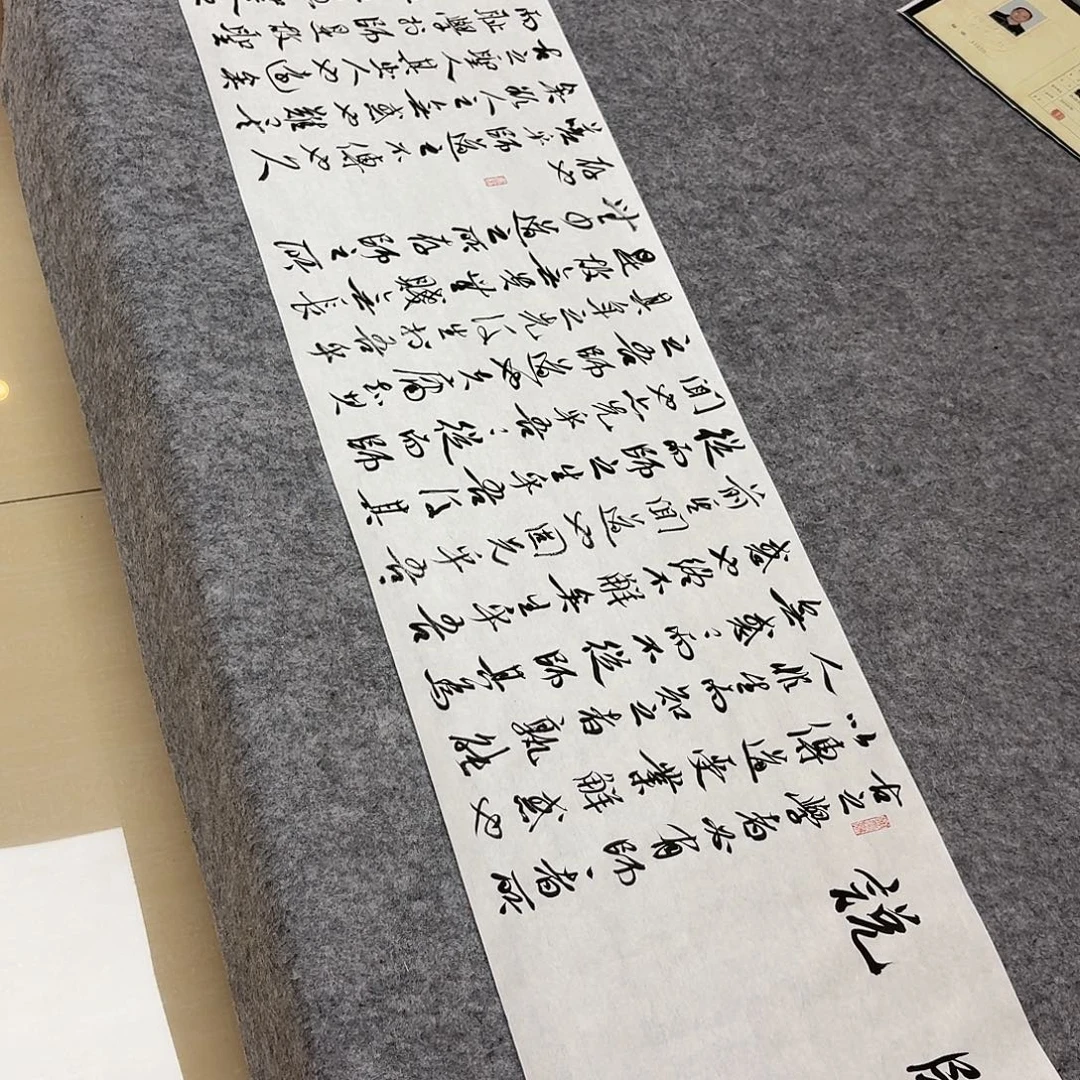 師說
古之學者必有師〻者所
以傳道受業解惑也
人非生而知之者孰能
無惑〻而不從師其為
惑也終不解矣生乎吾
前其聞道也固先乎吾
從而師之生乎吾後其
聞也亦先乎吾〻從而師
之吾師道也夫庸知
其年之先後生於吾乎
是故無貴無賤無長
無少道之所存師之所
存也
嗟乎師道之不傳也久
矣欲人之無惑也難矣
古之聖人其出人也遠矣
而恥學於師是故聖